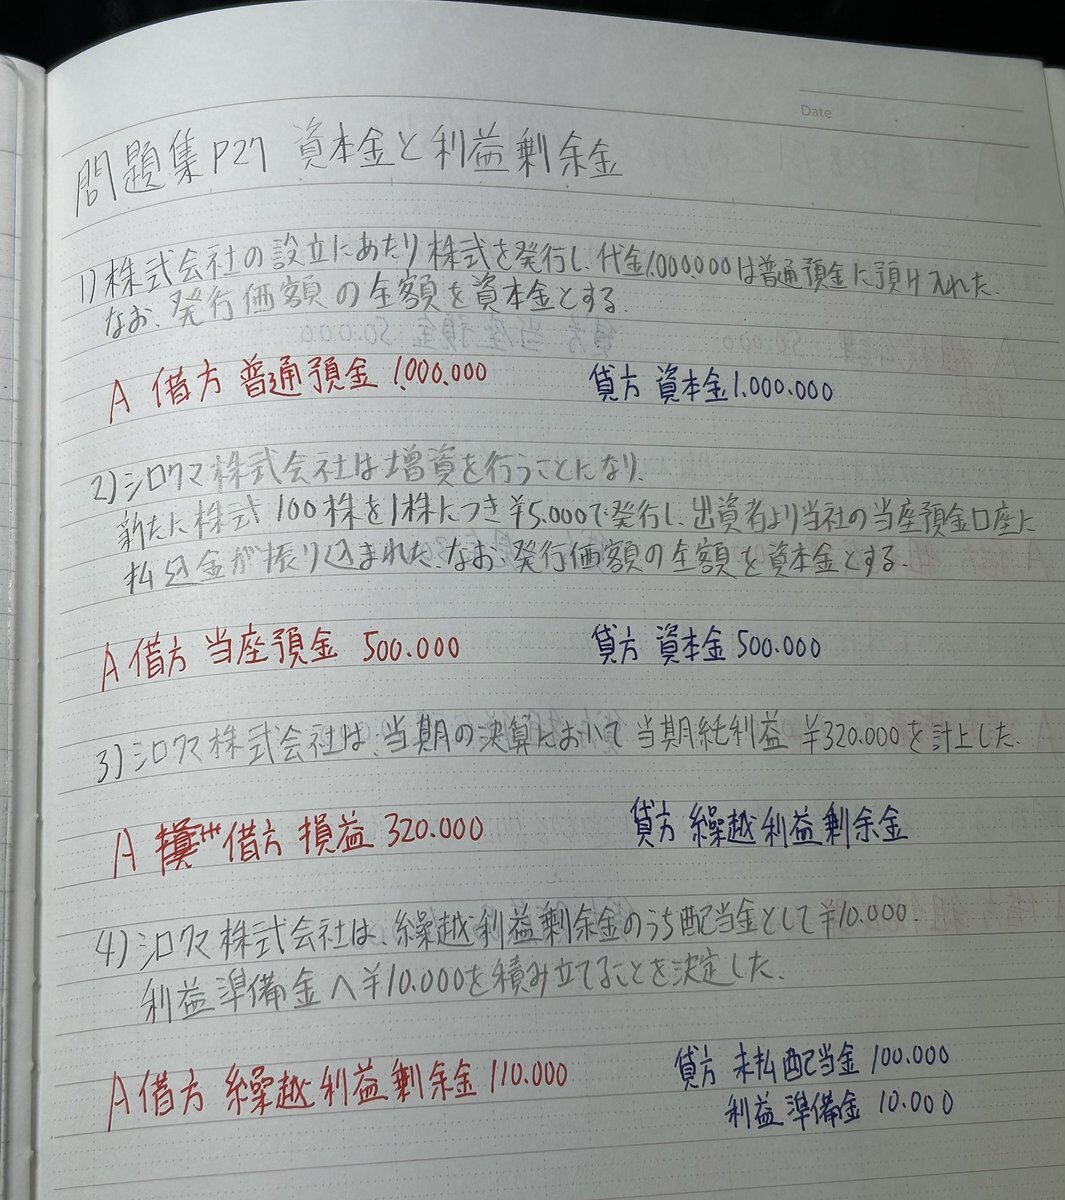 Date
問題集P27 資本金と利益剰余金
1)株式会社の設立にあたり株式を発行し、代金1.000.000は普通預金に預け入れた.
なお、発行価額の全額を資本金とする.
A 借方 普通預金 1.000.000 貸方 資本金1.000.000
2)シロクマ株式会社は増資を行うことになり、
新たに株式100株を1株につき¥5.000で発行し、出資者より当社の当座預金口座に
払込金が振り込まれた.なお、発行価額の全額を資本金とする.
A 借方 当座預金 500.000 貸方 資本金 500.000
3)シロクマ株式会社は、当期の決算において当期純利益 ¥320.000を計上した.
A 借方 損益 320.000 貸方 繰越利益剰余金
4)シロクマ株式会社は、繰越利益剰余金のうち配当金として¥10.000.
利益準備金へ¥10.000を積み立てることを決定した.
A 借方 繰越利益剰余金 110.000 貸方 未払配当金 100.000
利益準備金 10.000